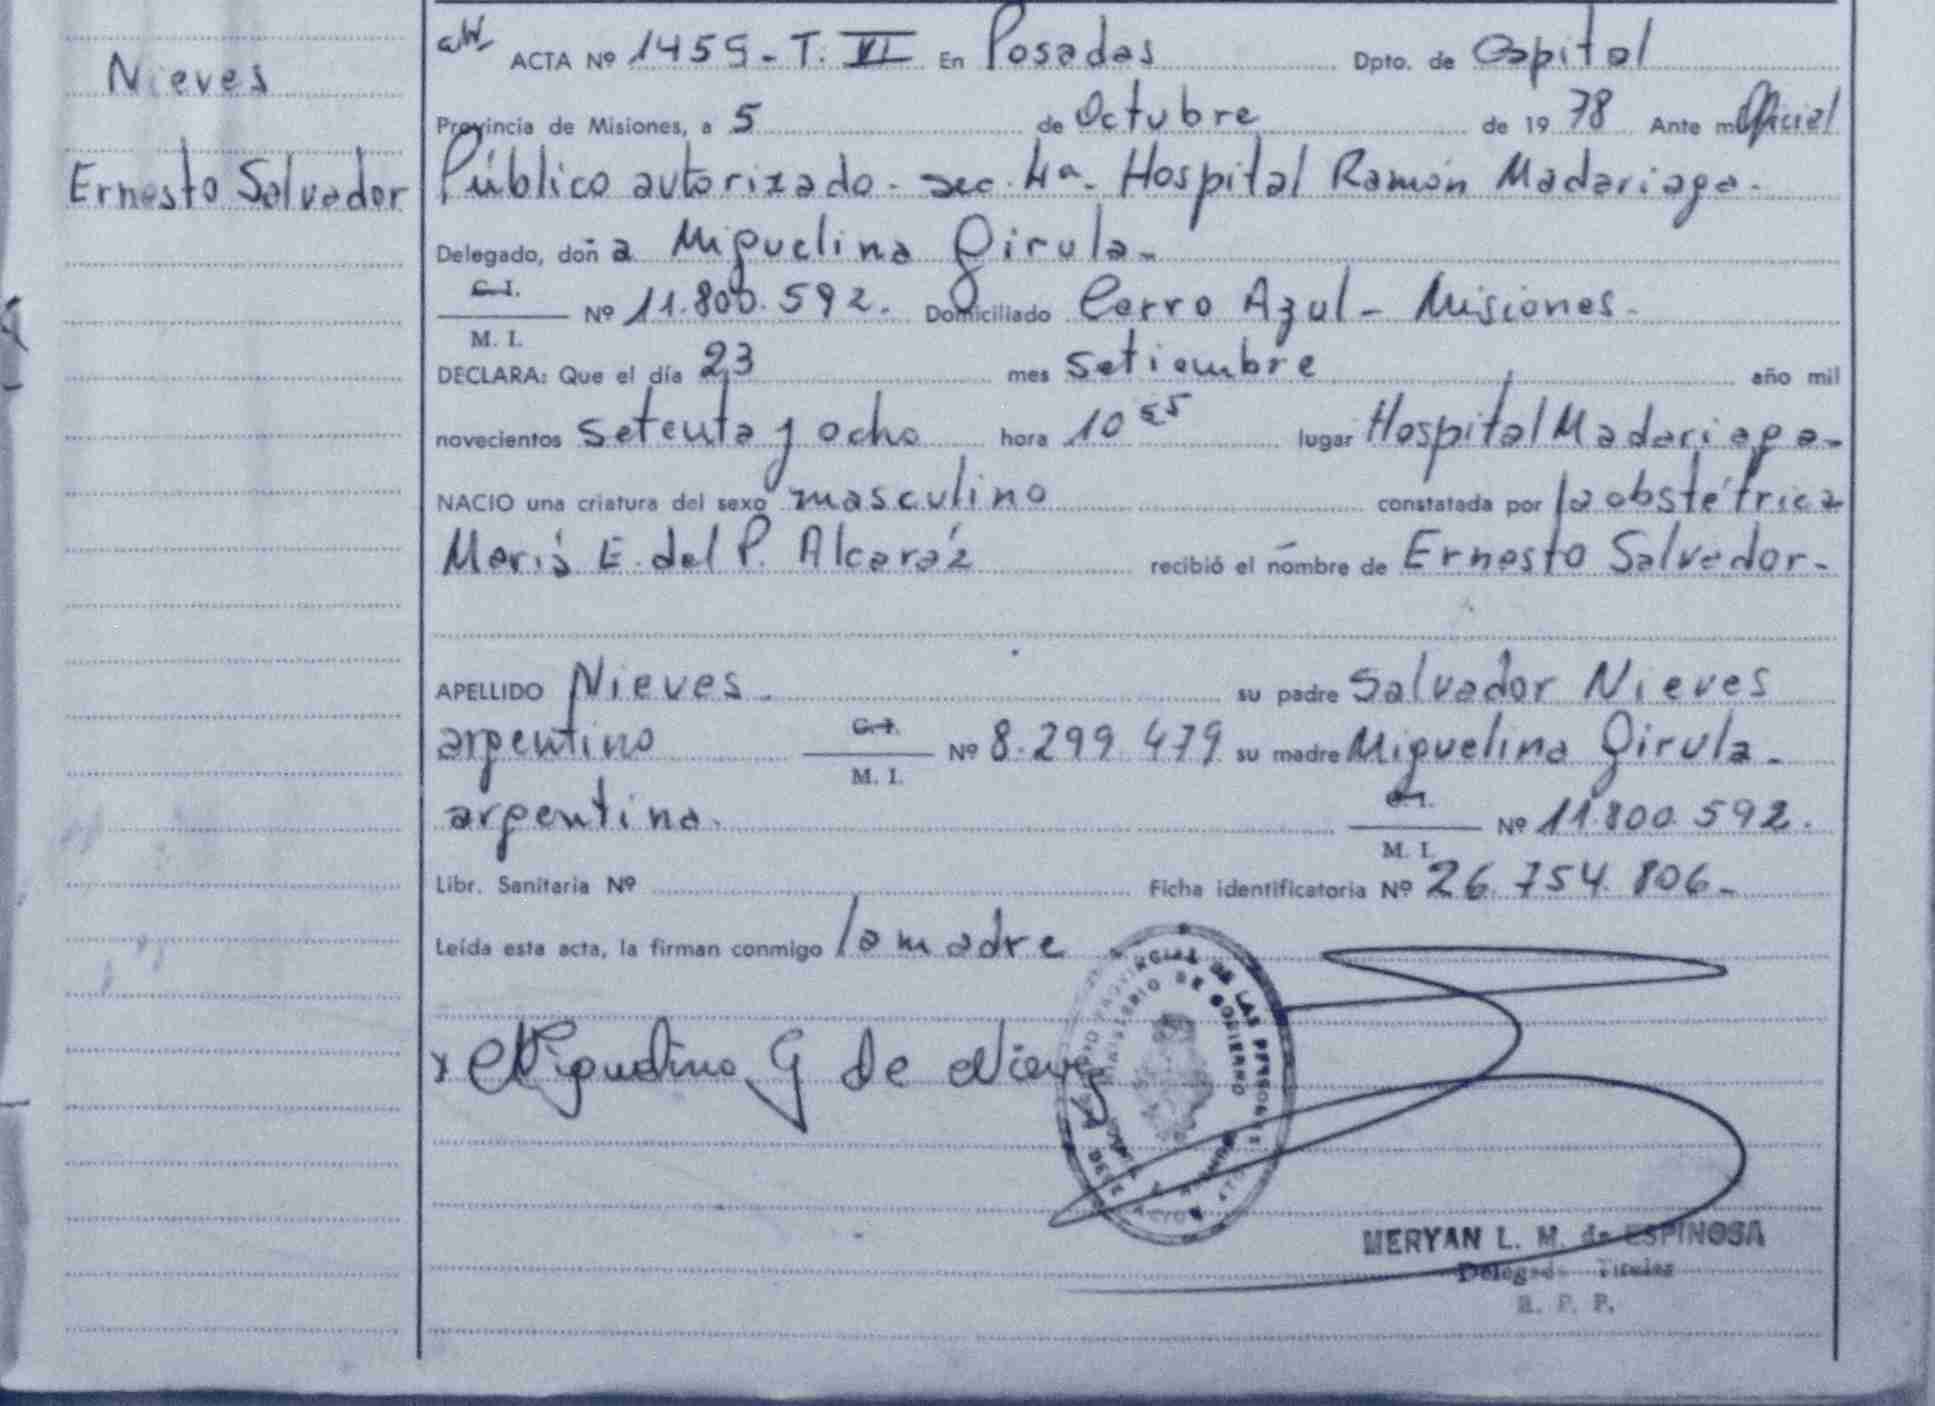 Nieves
Ernesto Salvador
ACTA Nº 1455 - T. VI En Posadas Dpto. de Capital
Provincia de Misiones, a 5 de Octubre de 1978 Ante mi Oficial
Público autorizado - sec. 4ª - Hospital Ramón Madariaga -
Delegado, doña Miguelina Girula -
C. I.
Nº 11.800.592. Domiciliado Cerro Azul - Misiones -
M. I.
DECLARA: Que el día 23 mes setiembre año mil
novecientos setenta y ocho hora 10 55 lugar Hospital Madariaga -
NACIO una criatura del sexo masculino constatada por la obstétrica
María E. del P. Alcaráz recibió el nombre de Ernesto Salvador -
APELLIDO Nieves - su padre Salvador Nieves
argentino C. I. Nº 8.299.479 su madre Miguelina Girula -
M. I.
argentina. C. I. Nº 11.800.592.
M. I.
Libr. Sanitaria Nº Ficha identificatoria Nº 26.754.806 -
Leída esta acta, la firman conmigo la madre
x Miguelina G de Nieves
PROVINCIAL DE LAS PERSONAS
MINISTERIO DE GOBIERNO
MERYAN L. M. de ESPINOSA
Delegada Titular
R. P. P.